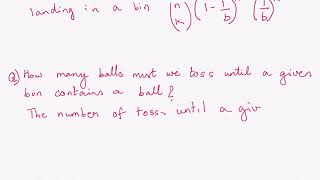 landing in a bin (n k) (1 - 1/b) (1/b)
Q) How many balls must we toss until a given
bin contains a ball?
The number of toss. until a giv